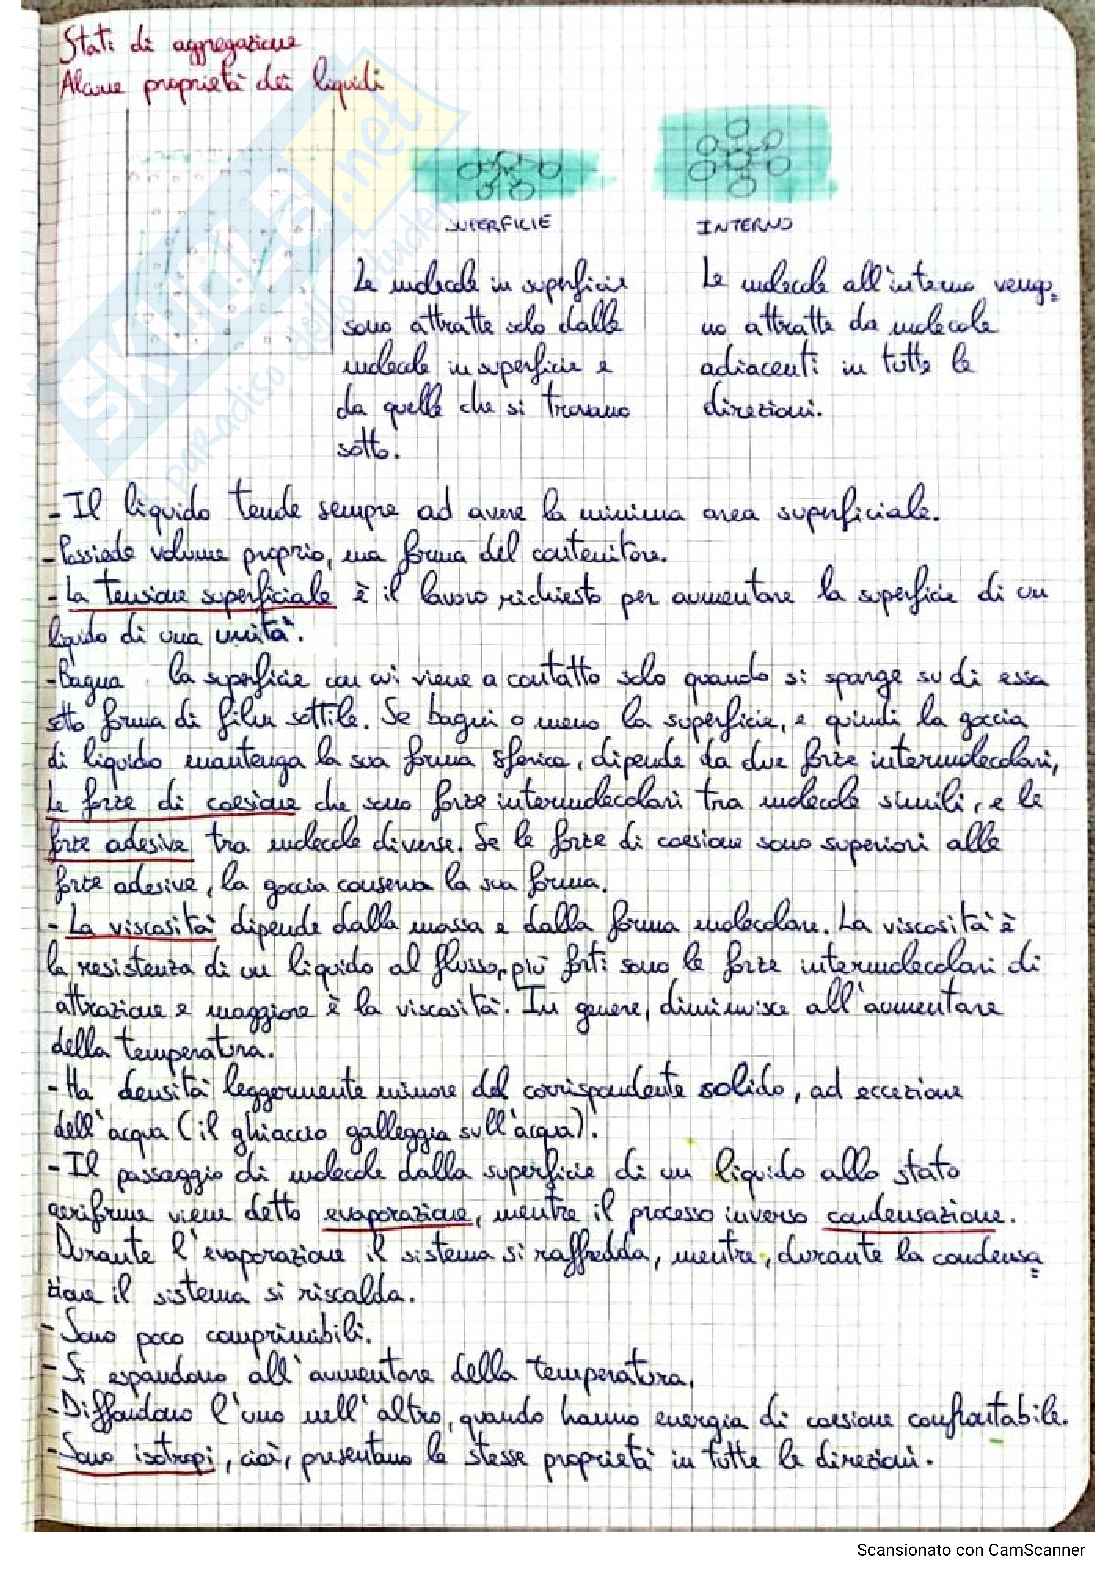 Stati di aggregazione
Alcune proprietà dei liquidi
SUPERFICIE
INTERNO
Le molecole in superficie
sono attratte solo dalle
molecole in superficie e
da quelle che si trovano
sotto.
Le molecole all'interno vengo=
no attratte da molecole
adiacenti in tutte le
direzioni.
- Il liquido tende sempre ad avere la minima area superficiale.
- Possiede volume proprio, ma forma del contenitore.
- La tensione superficiale è il lavoro richiesto per aumentare la superficie di un
liquido di una unità.
- Bagna la superficie con cui viene a contatto solo quando si spange su di essa
sotto forma di film sottile. Se bagni o meno la superficie, e quindi la goccia
di liquido mantenga la sua forma sferica, dipende da due forze intermolecolari,
Le forze di coesione che sono forze intermolecolari tra molecole simili, e le
forze adesive tra molecole diverse. Se le forze di coesione sono superiori alle
forze adesive, la goccia conserva la sua forma.
- La viscosità dipende dalla massa e dalla forma molecolare. La viscosità è
la resistenza di un liquido al flusso, più forti sono le forze intermolecolari di
attrazione e maggiore è la viscosità. In genere, diminuisce all'aumentare
della temperatura.
- Ha densità leggermente minore del corrispondente solido, ad eccezione
dell'acqua (il ghiaccio galleggia sull'acqua).
- Il passaggio di molecole dalla superficie di un liquido allo stato
aeriforme viene detto evaporazione, mentre il processo inverso condensazione.
Durante l'evaporazione il sistema si raffredda, mentre, durante la condensa=
zione il sistema si riscalda.
- Sono poco comprimibili.
- Si espandono all'aumentare della temperatura.
- Diffondono l'uno nell'altro, quando hanno energia di coesione confrontabile.
- Sono isotropi, cioè, presentano le stesse proprietà in tutte le direzioni.
SKUOLA.net
il paradiso dello studente
Scansionato con CamScanner